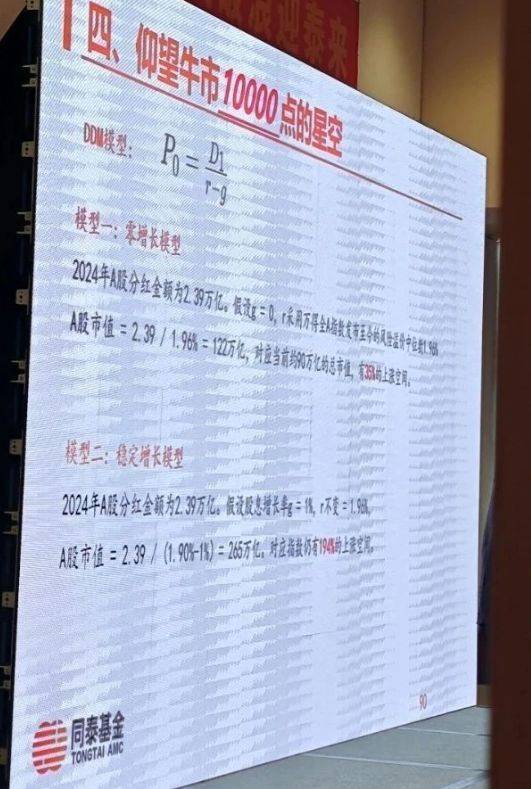 迎泰来
四、仰望牛市10000点的星空
DDM模型: P₀ = D1 / r-g
模型一: 零增长模型
2024年A股分红金额为2.39万亿。假设g = 0, r采用万得全A指数发布至今的风险溢价中位数1.96%
A股市值 = 2.39 / 1.96% = 122万亿, 对应当前约90万亿的总市值, 有35%的上涨空间。
模型二: 稳定增长模型
2024年A股分红金额为2.39万亿。假设股息增长率g = 1%, r不变 = 1.96%,
A股市值 = 2.39 / (1.90%-1%) = 265万亿。对应指数仍有194%的上涨空间。
90
同泰基金
TONGTAI AMC